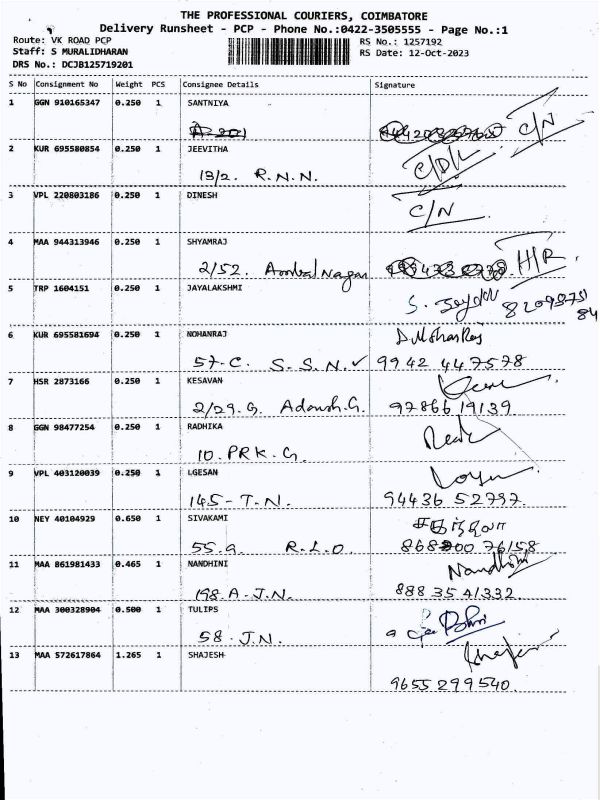 THE PROFESSIONAL COURIERS, COIMBATORE
Delivery Runsheet - PCP - Phone No.:0422-3505555 - Page No.:1
Route: VK ROAD PCP RS No.: 1257192
Staff: S MURALIDHARAN RS Date: 12-Oct-2023
DRS No.: DCJB125719201
S No Consignment No Weight PCS Consignee Details Signature
1 GGN 910165347 0.250 1 SANTNIYA
C/N
2 KUR 695580854 0.250 1 JEEVITHA
13/2. R.N.N. C/D/L
3 VPL 220803186 0.250 1 DINESH
C/N
4 MAA 944313946 0.250 1 SHYAMRAJ
2/52. Ambal Nagar H/R
5 TRP 1604151 0.250 1 JAYALAKSHMI
S.
6 KUR 695581694 0.250 1 NOHANRAJ D.Mohan Raj
57-C. S.S.N. ✓ 9942 447578
7 HSR 2873166 0.250 1 KESAVAN
2/29.G. Adarsh.G. 97866 19139
8 GGN 98477254 0.250 1 RADHIKA
10.PRK.G.
9 VPL 403120039 0.250 1 LGESAN
145-T.N. 94436 52797.
10 NEY 40104929 0.650 1 SIVAKAMI
55.G. R.L.O.
11 MAA 861981433 0.465 1 NANDHINI Nandhini
198.A-J.N. 888 35 41332.
12 MAA 300328904 0.500 1 TULIPS
58.J.N.
13 MAA 572617864 1.265 1 SHAJESH
9655 299540.